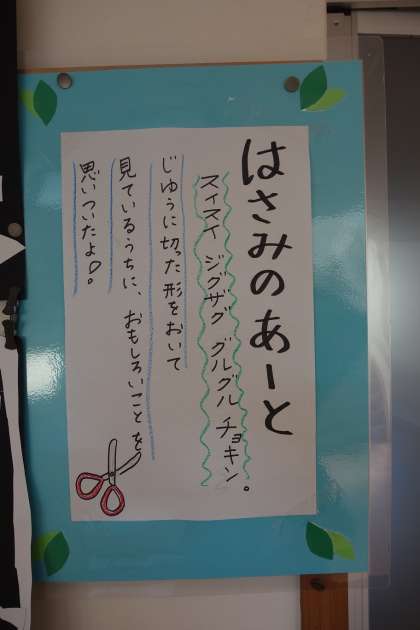 はさみのあーと
スイスイ ジグザグ グルグル チョキン。
じゆうに切った形をおいて
見ているうちに、おもしろいことを
思いついたよ。